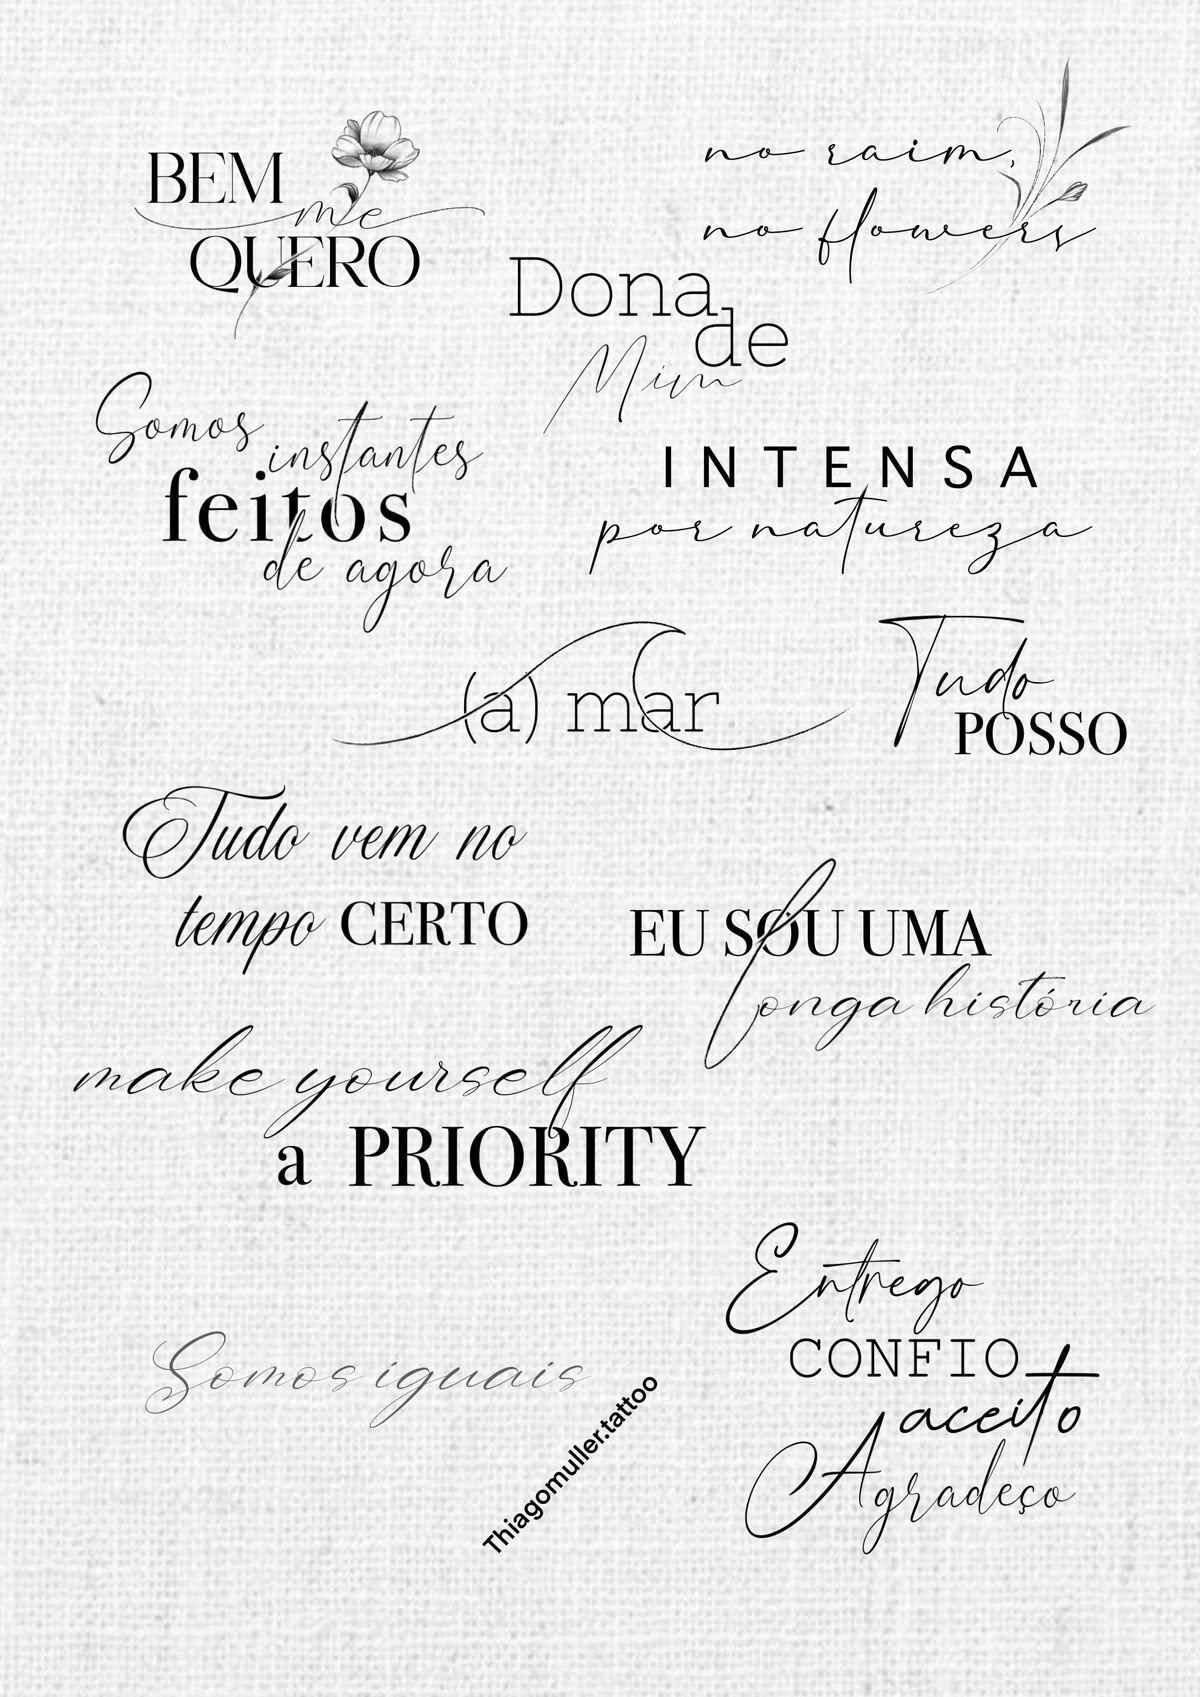 BEM
me
QUERO
no raim,
no flowers
Dona
de
Mim
Somos
instantes
feitos
de agora
INTENSA
por natureza
(a) mar
Tudo
POSSO
Tudo vem no
tempo CERTO
EU SOU UMA
longa história
make yourself
a PRIORITY
Somos iguais
Entrego
CONFIO
aceito
Agradeço
Thiagomuller.tattoo